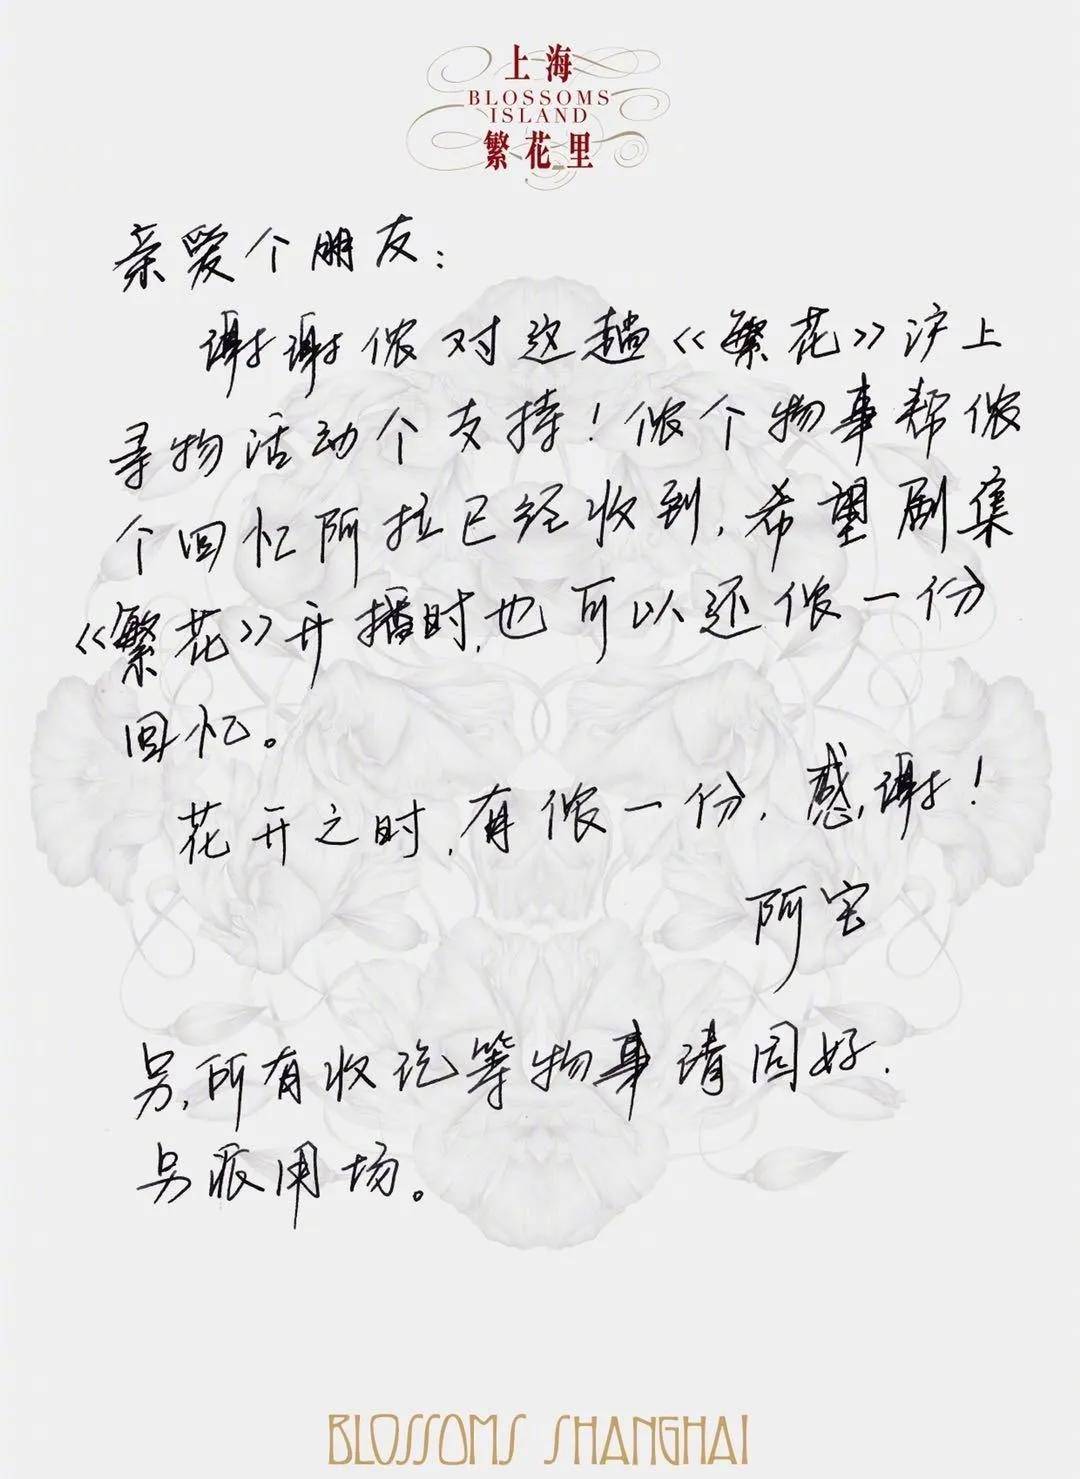 上海
BLOSSOMS
ISLAND
繁花里
亲爱个朋友：
谢谢侬对这趟《繁花》沪上
寻物活动个支持！侬个物事帮侬
个回忆阿拉已经收到，希望剧集
《繁花》开播时，也可以还侬一份
回忆。
花开之时，有侬一份，感谢！
阿宝
另，所有收讫等物事请园好．
另派用场。
BLOSSOMS SHANGHAI